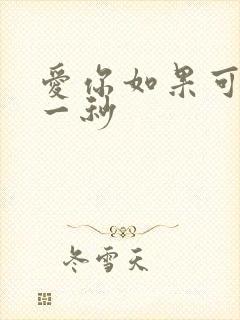 愛你如果可
一秒
冬雪天